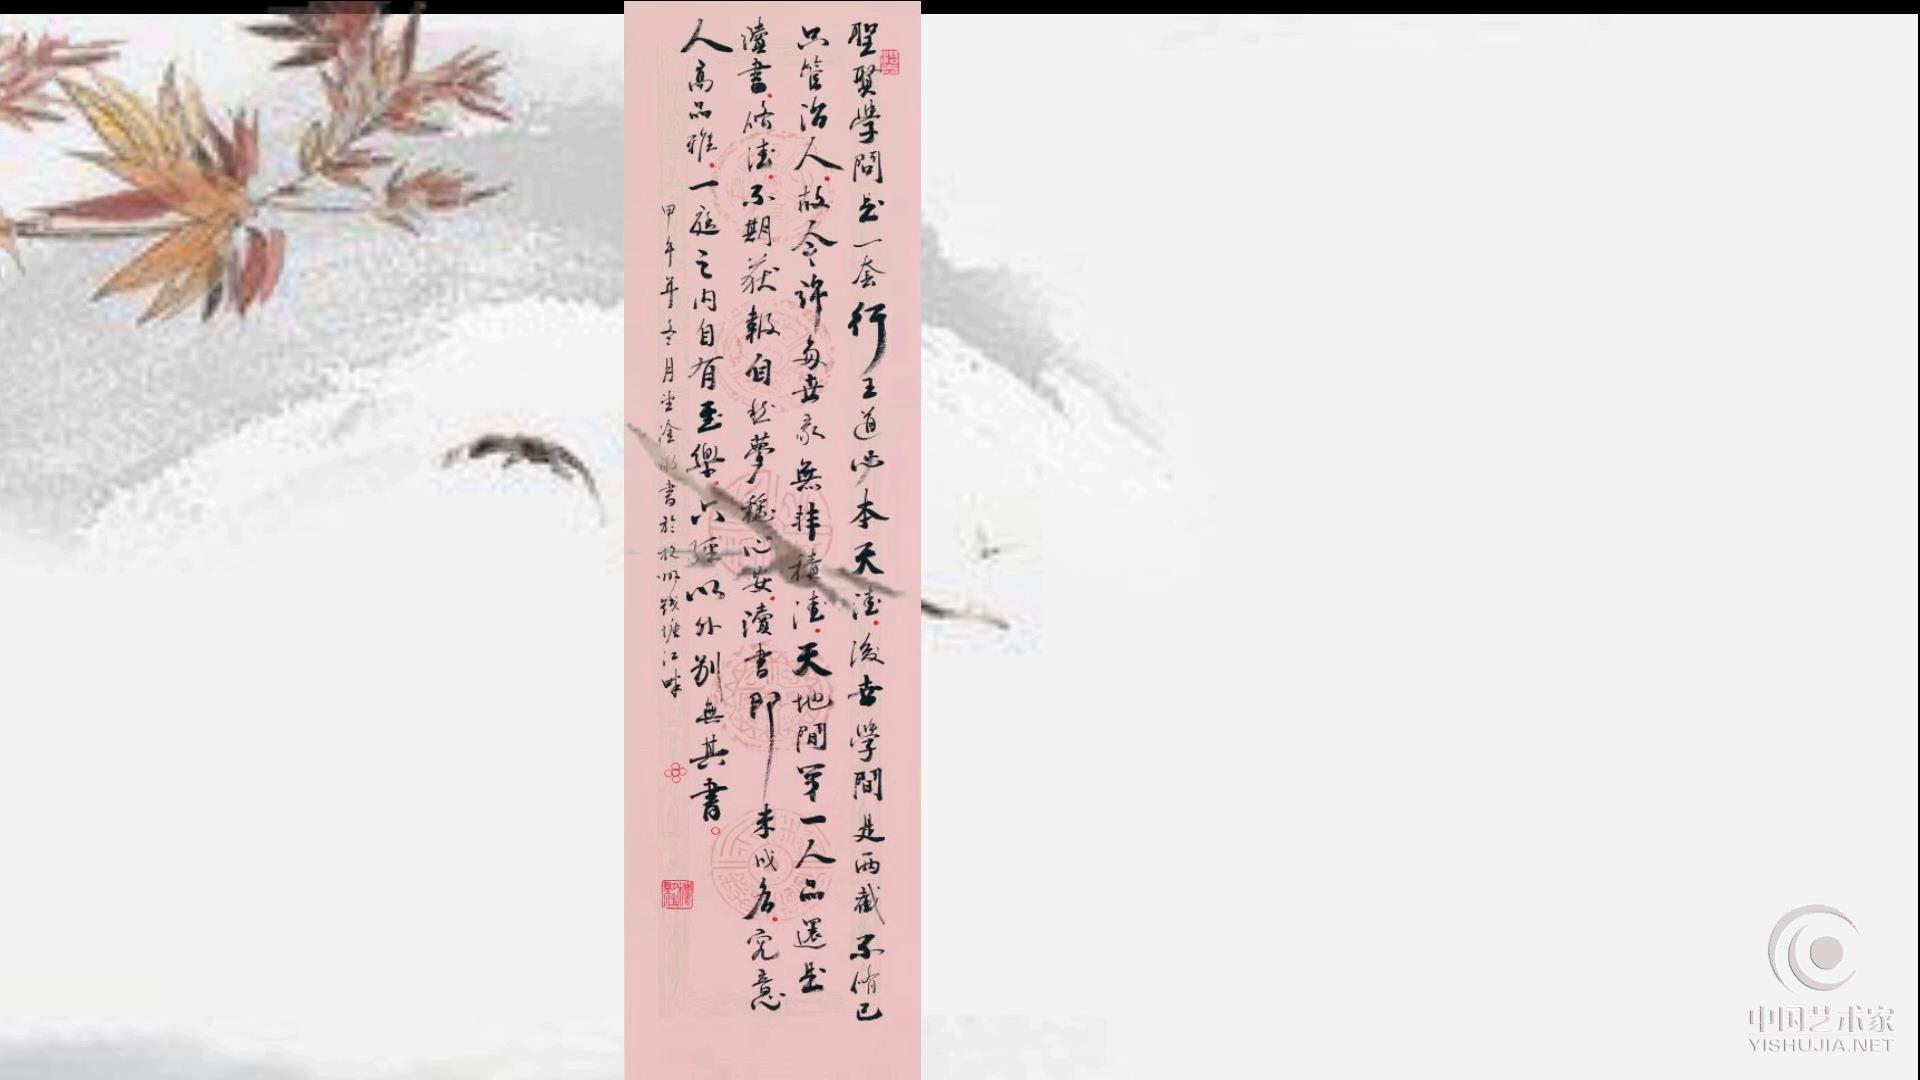 聖賢學問是一套行王道必本天德後世學問是兩截不脩己
只管治人故今許多世家無非積德天地間第一人品還是
讀書脩德不期获報自然夢穩心安讀書即未成名究竟
人高品雅一庭之内自有至樂六經以外别無其書
甲午年冬月 敬書於杭州錢塘江畔
中国艺术家
YISHUJIA.NET